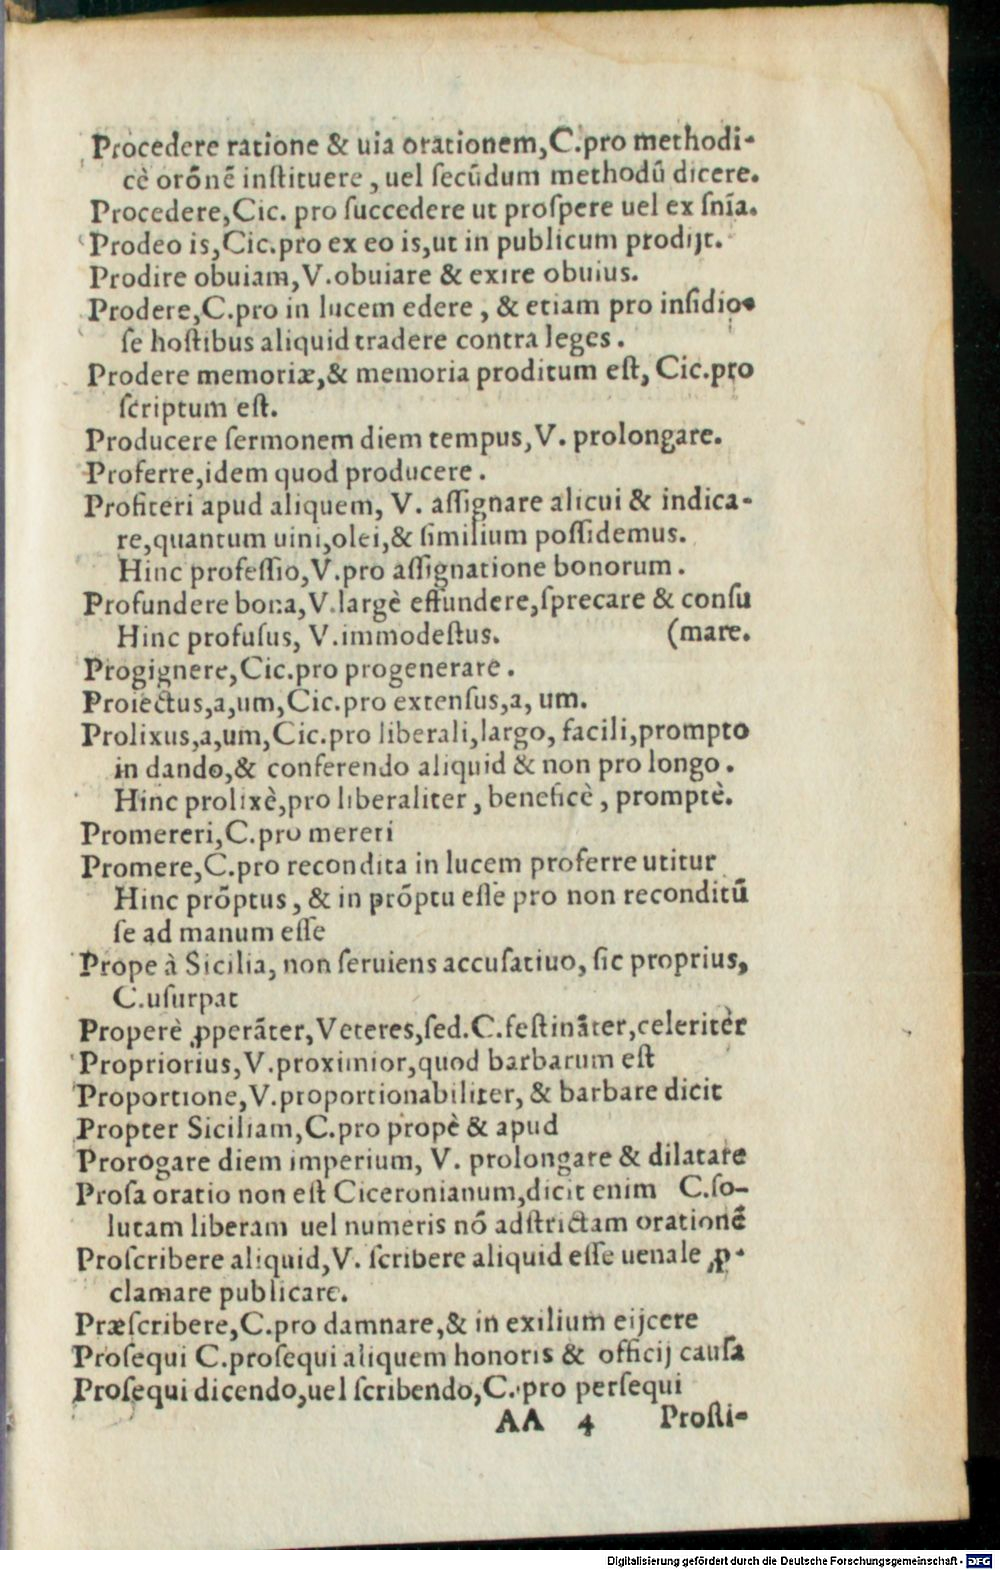 Procedere ratione & uia orationem,C.pro methodi-
cè orõnẽ inſtituere, uel ſecũdum methodũ dicere.
Procedere,Cic. pro ſuccedere ut proſpere uel ex ſnĩa.
Prodeo is,Cic.pro ex eo is,ut in publicum prodijt.
Prodire obuiam,V.obuiare & exire obuius.
Prodere,C.pro in lucem edere, & etiam pro inſidio-
ſe hoſtibus aliquid tradere contra leges.
Prodere memoriæ,& memoria proditum eſt, Cic.pro
ſcriptum eſt.
Producere ſermonem diem tempus,V. prolongare.
Proferre,idem quod producere.
Profiteri apud aliquem, V. aſſignare alicui & indica-
re,quantum uini,olei,& ſimilium poſſidemus.
Hinc profeſſio,V.pro aſſignatione bonorum.
Profundere bona,V.largè effundere,ſprecare & conſu
Hinc profuſus, V.immodeſtus. (mare.
Progignere,Cic.pro progenerare.
Proiectus,a,um,Cic.pro extenſus,a, um.
Prolixus,a,um,Cic.pro liberali,largo, facili,prompto
in dando,& conferendo aliquid & non pro longo.
Hinc prolixè,pro liberaliter, beneficè, promptè.
Promereri,C.pro mereri
Promere,C.pro recondita in lucem proferre utitur
Hinc prõptus, & in prõptu eſſe pro non reconditũ
ſe ad manum eſſe
Prope à Sicilia, non ſeruiens accuſatiuo, ſic proprius,
C.uſurpat
Properè ꝓperãter,Veteres,ſed.C.feſtinãter,celeritèr
Propriorius,V.proximior,quod barbarum eſt
Proportione,V.proportionabiliter, & barbare dicit
Propter Siciliam,C.pro propè & apud
Prorogare diem imperium, V. prolongare & dilatare
Proſa oratio non eſt Ciceronianum,dicit enim C.ſo-
lutam liberam uel numeris nõ adſtrictam orationẽ
Proſcribere aliquid,V. ſcribere aliquid eſſe uenale ꝓ-
clamare publicare.
Præſcribere,C.pro damnare,& in exilium eijcere
Proſequi C.proſequi aliquem honoris & officij cauſa
Proſequi dicendo,uel ſcribendo,C.pro perſequi
AA 4 Proſti-
Digitalisierung gefördert durch die Deutsche Forschungsgemeinschaft - DFG